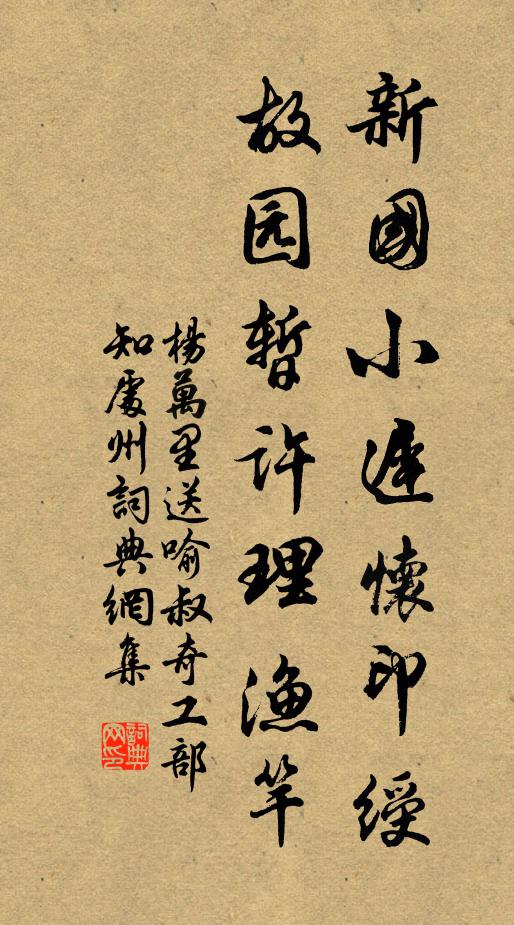 新國小遲懷印綬
故园暫許理漁竿
楊萬里送喻叔奇工部
知處州詞典網集
詞典
网印